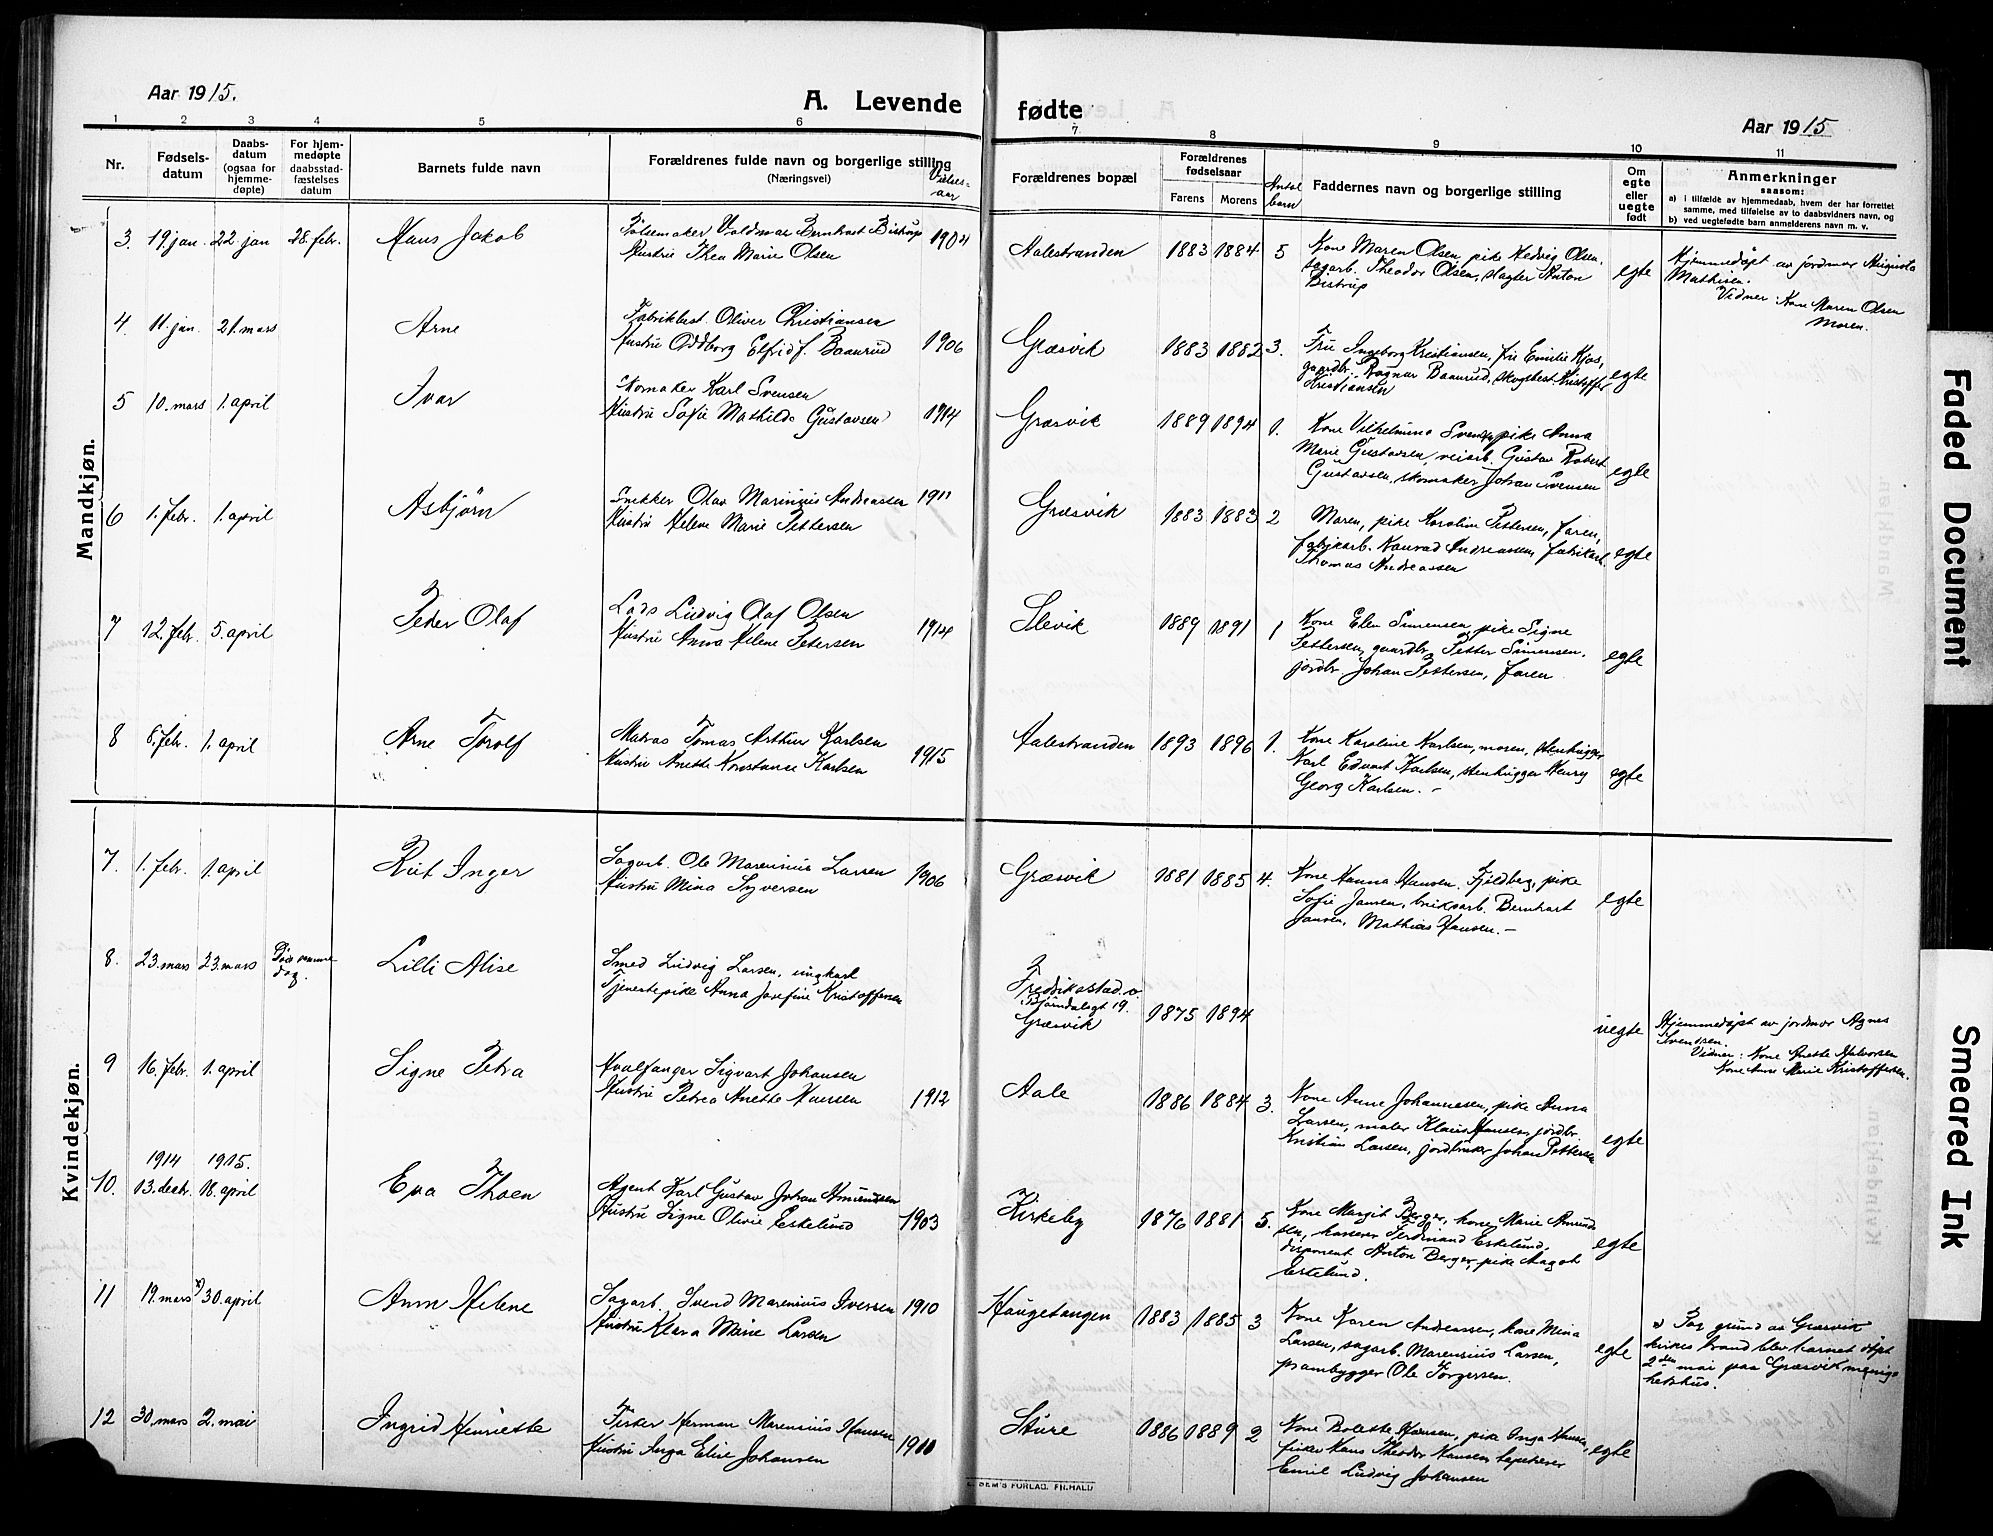 Aar 1915.
A. Levende
fødte
Aar 1915
1 2 3 4 5 6 7 8 9 10 11
Nr.
Fødsels-
datum
Daabs-
datum
(ogsaa for
hjemme-
døpte)
For hjem-
medøpte
daabsstad-
fæstelses
datum
Barnets fulde navn
Forældrenes fulde navn og borgerlige stilling
(Næringsvei)
Vielses-
aar
Forældrenes bopæl
Forældrenes
fødselsaar
Farens Morens
Antal
barn
Faddernes navn og borgerlige stilling
Om
egte
eller
uegte
født
Anmerkninger
saasom:
a) i tilfælde av hjemmedaab, hvem der har forrettet
samme, med tilføielse av to daabsvidners navn, og
b) ved uegtefødte barn anmelderens navn m. v.
Mandkjøn.
3. 19 jan. 22 jan 28. febr. Hans Jakob
Pølsemaker Valdmar Bernhart Bistrup 1904
Hustru Thea Marie Olsen
Aalestranden 1883 1884 5
Kone Maren Olsen, pike Hedvig Olsen,
sagarb. Theodor Olsen, slagter Anton
Bistrup
egte
Hjemmedøpt av jordmor Augusta
Mathisen.
Vidner: Kone Maren Olsen
Moren.
4. 11. jan. 21. mars Arne
Fabrikbest. Oliver Christiansen
Hustru Oddborg Elfrid f. Baanrud 1906
Græsvik 1883 1882 3.
Fru Ingeborg Kristiansen, fru Emilie Kjos,
gaardbr. Ragnar Baanrud, skogbest. Kristoffer
Kristiansen
egte
5 10. mars 1. april Ivar
Skomaker Karl Svensen
Hustru Sofie Mathilde Gustavsen 1914
Græsvik 1889 1894 1.
Kone Vilhelmina Svendsen, pike Anna
Marie Gustavsen, veiarb. Gustav Robert
Gustavsen, skomaker Johan Svensen
egte
6 1. febr. 1. april Asbjörn
Snekker Olav Marinius Andreassen 1911
Hustru Helene Marie Pettersen
Græsvik 1883 1883 2
Moren, pike Karoline Pettersen, faren,
fabrikarb. Konrad Andreassen, fabrikarb.
Thomas Andreassen
egte
7 12. febr. 5. april Peder Olaf
Lods Ludvig Olaf Olsen
Hustru Anna Helene Petersen 1914
Slevik 1889 1891 1
Kone Elen Simensen, pike Signe
Pettersen, gaardbr. Petter Simensen,
jordbr. Johan Pettersen, faren
egte
8 8. febr. 1. april Arne Torolf
Matros Tomas Arthur Karlsen
Hustru Anette Konstanse Karlsen 1915
Aalestranden 1893 1896 1.
Kone Karoline Karlsen, moren, stenhugger
Karl Edvart Karlsen, stenhugger Henry
Georg Karlsen. –
egte
Kvindekjøn.
7. 1. febr. 1. april Rut Inger
Sagarb. Ole Marensius Larsen 1906
Hustru Mina Syversen
Græsvik 1881 1885 4.
Kone Hanna Hansen, Fjeldberg, pike
Sofie Jansen, bruksarb. Bernhart
Jansen, Mathias Hansen. –
egte
8. 23. mars 23. mars Død samme
dag.
Lilli Alise
Smed Ludvig Larsen, ungkarl
Tjenestepike Anna Josefine Kristoffersen
Fredrikstad o.
Bjørndalegt 19.
Græsvik
1875 1894
uegte
Hjemmedøpt av jordmor Agnes
Svendsen.
Vidner: Kone Anette Halvorsen
Kone Anne Marie Kristoffersen.
9 16. febr. 1. april Signe Petra
Hvalfanger Sigvart Johansen
Hustru Petrea Anette Hansen 1912
Aale 1886 1884 3.
Kone Anne Johannesen, pike Anna
Larsen, maler Klaus Hansen, jordbr.
Kristian Larsen, jordbruker Johan Pettersen
egte
1914 1915.
10. 13. decbr. 18. april Eva Thoen
Agent Karl Gustav Johan Amundsen
Hustru Signe Olivie Eskelund 1903
Kirkeby 1876 1881 5.
Kone Margit Berger, kone Marie Amund
sen, kasserer Ferdinand Eskelund,
disponent Anton Berger, pike Aagot
Eskelund.
egte
11 19. mars x) 30. april Anm Helene
Sagarb. Svend Marensius Iversen 1910
Hustru Klara Marie Larsen
Haugetangen 1883 1885 3
Kone Karen Andreassen, kone Mina
Larsen, sagarb. Marensius Larsen,
prambygger Ole Torgersen.
egte
x) Paa grund av Græsvik
kirkes brand blev barnet døpt
2den mai paa Græsvik menig-
hetshus.
12 30. mars 2. mai Ingrid Henriette
Fisker Herman Marensius Hansen
Hustru Inga Elise Johansen 1911
Sture 1886 1889 2
Kone Bolette Hansen, pike Inga Hansen,
fisker Hans Theodor Hansen, tapetserer
Emil Ludvig Johansen
egte
SEM'S FORLAG, FR.HALD
Faded Document
Smeared Ink